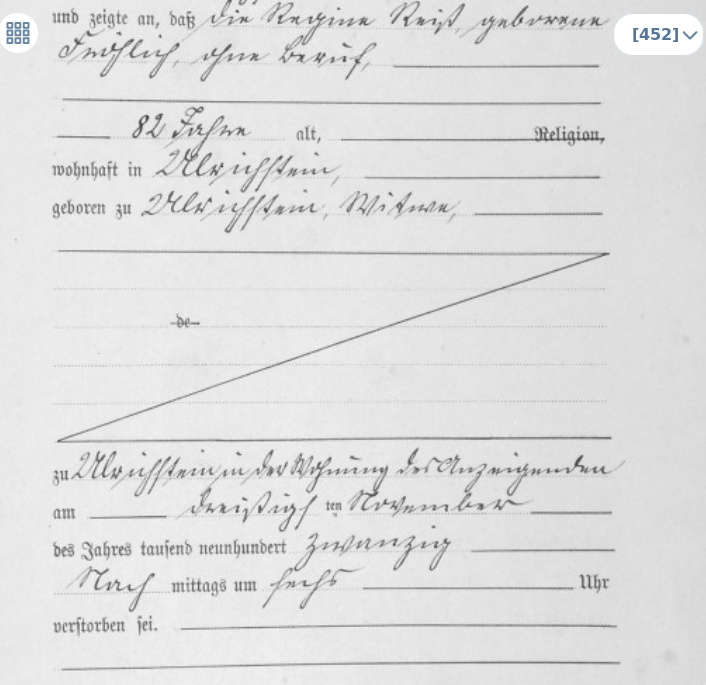 und zeigte an, daß die Regine Reiß, geborene
[452]
Fröhlich, ohne Beruf,
82 Jahre alt, Religion,
wohnhaft in Ulrichstein,
geboren zu Ulrichstein, Witwe,
de
zu Ulrichstein in der Wohnung des Anzeigenden
am dreißigsten November
des Jahres tausend neunhundert zwanzig
Nach mittags um sechs Uhr
verstorben sei.